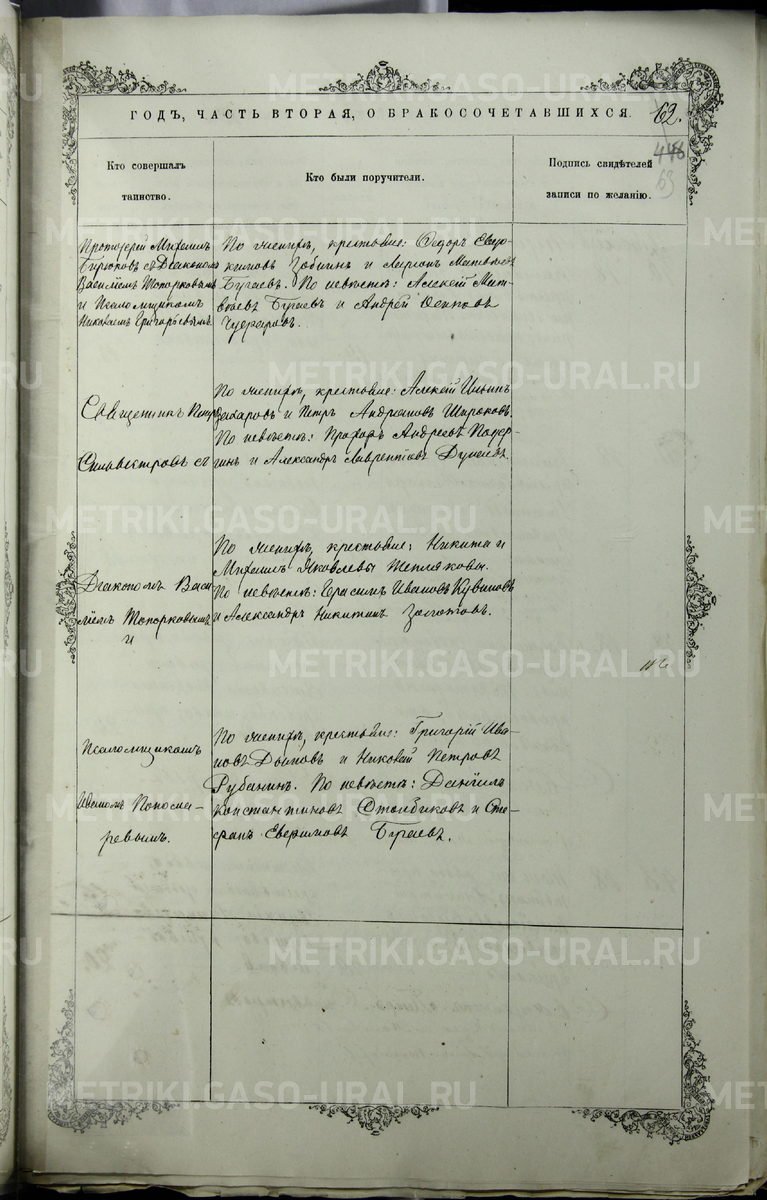 ГОДЪ, ЧАСТЬ ВТОРАЯ, О БРАКОСОЧЕТАВШИХСЯ.
62.
446
63
Кто совершалъ
таинство.
Кто были поручители.
Подпись свидѣтелей
записи по желанію.
Протоіерей Михаилъ
Бирюковъ съ Діакономъ
Василіемъ Топорковымъ
и Псаломщикомъ
Николаемъ Григорьевымъ.
По женихѣ, крестьяне: Ѳедоръ Евдо-
кимовъ и Ларіонъ Матвѣевъ
Бугаевъ. По невѣстѣ: Алексѣй Мат-
вѣевъ Бугаевъ и Андрей Осиповъ
Священникъ Петръ
Сильвестровъ съ
По женихѣ, крестьяне: Алексѣй Ильинъ
Захаровъ и Петръ Андреяновъ Широковъ.
По невѣстѣ: Андреевъ
и Александръ Лаврентіевъ
Діакономъ Васи
ліемъ Топорковымъ
и
По женихѣ, крестьяне: Никита и
Михаилъ Яковлевы Тепляковы.
По невѣстѣ: Герасимъ Ивановъ
и Александръ Никитинъ Золотовъ.
Псаломщикомъ
Иваномъ Понома-
ревымъ.
По женихѣ, крестьяне: Григорій Ива-
новъ и Николай Петровъ
Рубанинъ. По невѣстѣ: Даніилъ
Константиновъ Столбиковъ и Сте-
фанъ Евфимовъ Бугаевъ.
METRIKI.GASO-URAL.RU